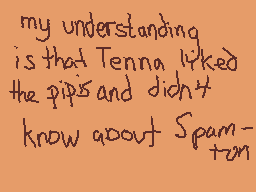 my understanding
is that Tenna liked
the pipis and didn't
know about Spam-
ton